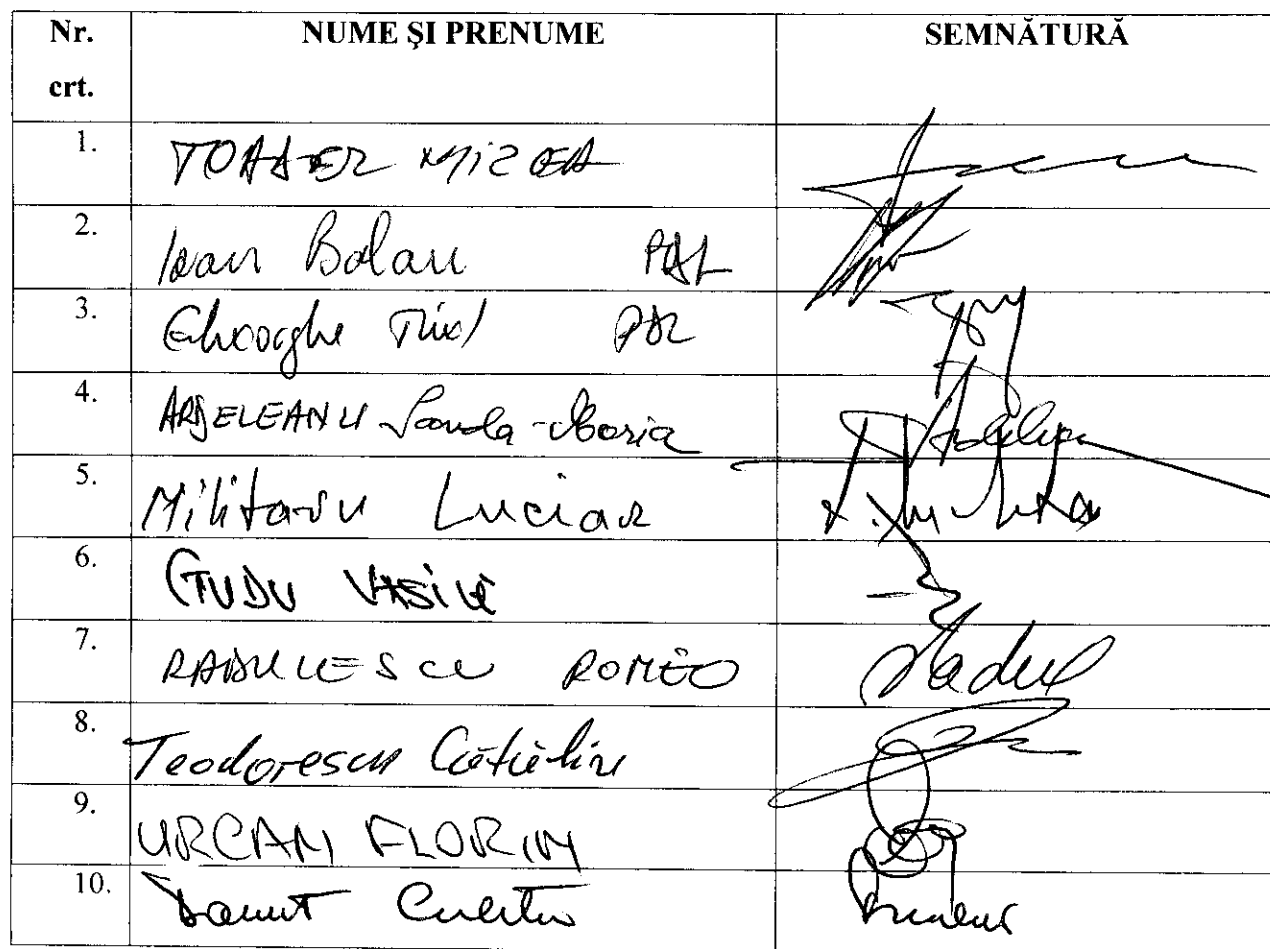 Nr. crt. NUME ŞI PRENUME SEMNĂTURĂ
1. TOADER MIRCEA
2. Ioan Balan PDL
3. Gheorghe PDL
4. ARDELEANU Sanda-Maria
5. Militaru Lucian
6. GUDU VASILE
7. RADULESCU ROMEO
8. Teodorescu Cătălin
9. URCAN FLORIN
10. Danut